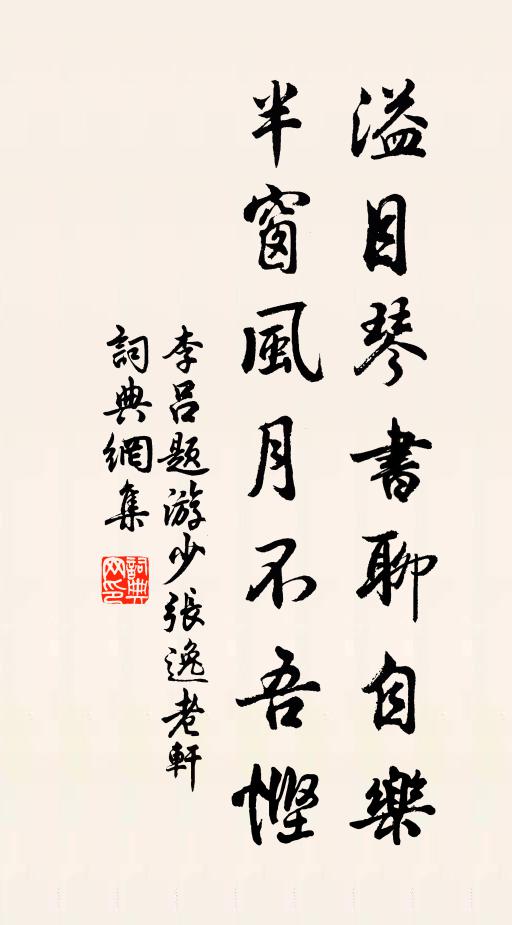 溢目琴書聊自樂
半窗風月不吾慳
李呂題游少張逸老軒
詞典網集
詞典网印